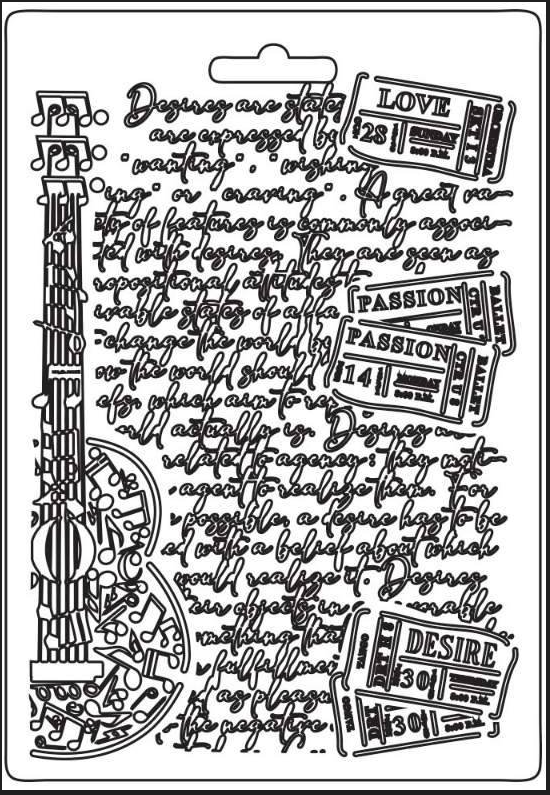 Desires are states
LOVE
28
SUNDAY
8:00 P.M.
ORCHESTRA
are expressed by
"wanting", "wishing
ing" or craving". A great va-
ty of features is commonly associ-
ted with desires. They are seen as
ropositional attitudes
PASSION
BALLET
ivable states of affa
change the world by
PASSION
14
MONDAY
8:00 P.M.
BALLET
ow the world shoul
efs, which aim to rep
orld actually is. Desires
related to agency: they moti-
agent to realize them. For
possible, a desire has to be
ed with a belief about which
would realize it. Desires
eir objects in vorable
mething tha
DESIRE
30
THURSDAY
8:00 P.M.
TANGO
fulfillmen
as pleasu
30
the negative